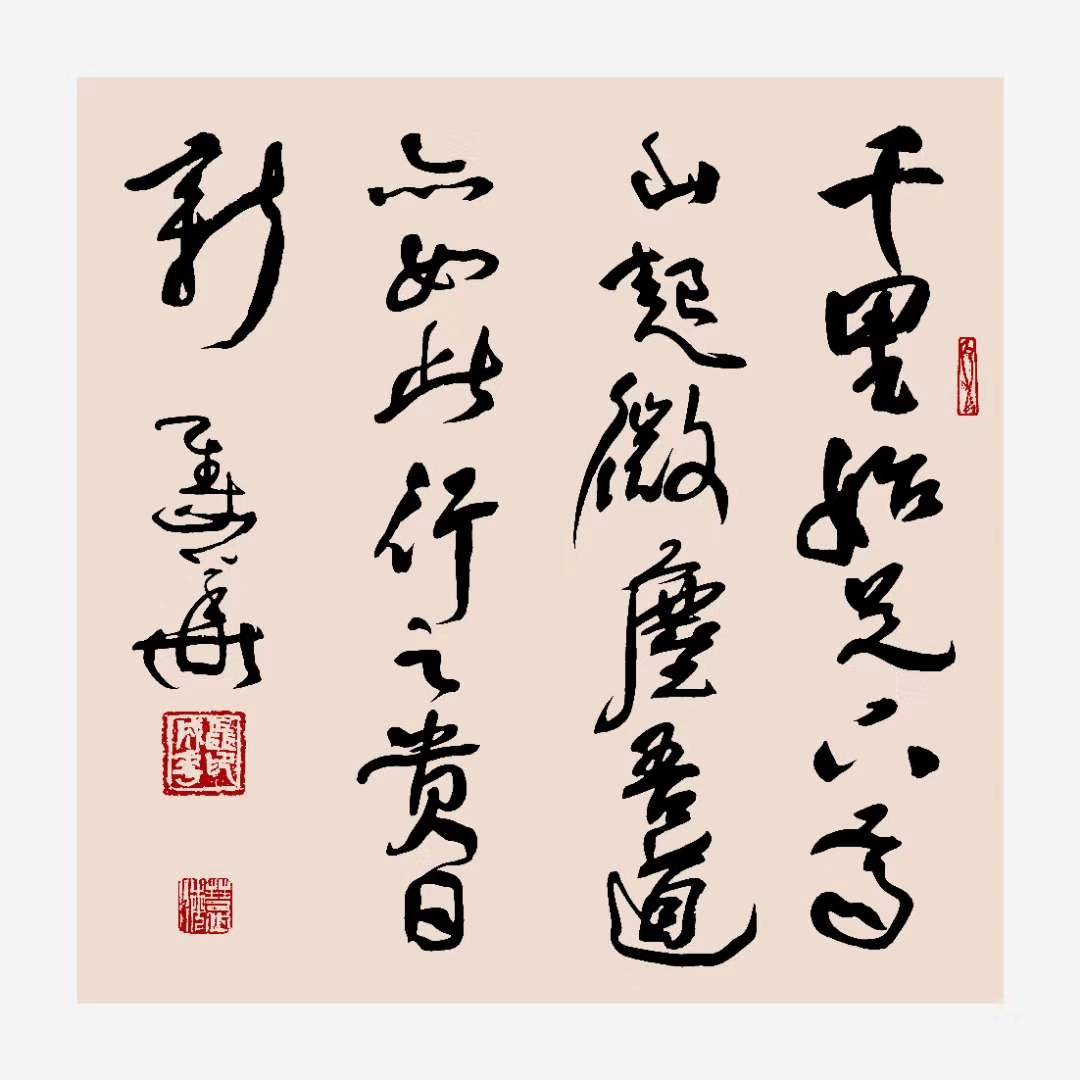 千里始足下高
山起微塵吾道
亦如此行之貴日
新